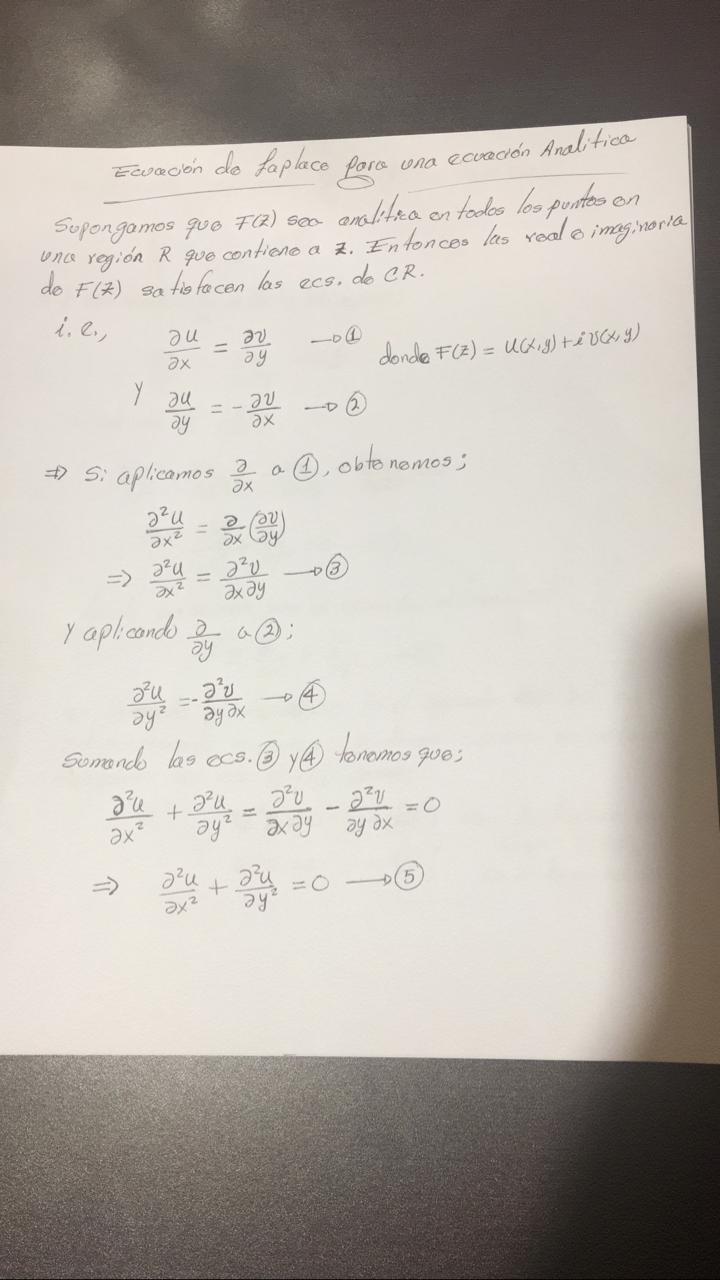 Ecuación de Laplace para una ecuación Analítica
Supongamos que F(z) sea analítica en todos los puntos en
una región R que contiene a z. Entonces las real e imaginaria
de F(z) satisfacen las ecs. de CR.
i.e., ∂u/∂x = ∂v/∂y → ① donde F(z) = u(x,y) + i v(x,y)
y ∂u/∂y = - ∂v/∂x → ②
⇒ Si aplicamos ∂/∂x a ①, obtenemos;
∂²u/∂x² = ∂/∂x (∂v/∂y)
⇒ ∂²u/∂x² = ∂²v/∂x∂y → ③
Y aplicando ∂/∂y a ②;
∂²u/∂y² = - ∂²v/∂y∂x → ④
Sumando las ecs. ③ y ④ tenemos que;
∂²u/∂x² + ∂²u/∂y² = ∂²v/∂x∂y - ∂²v/∂y∂x = 0
⇒ ∂²u/∂x² + ∂²u/∂y² = 0 → ⑤